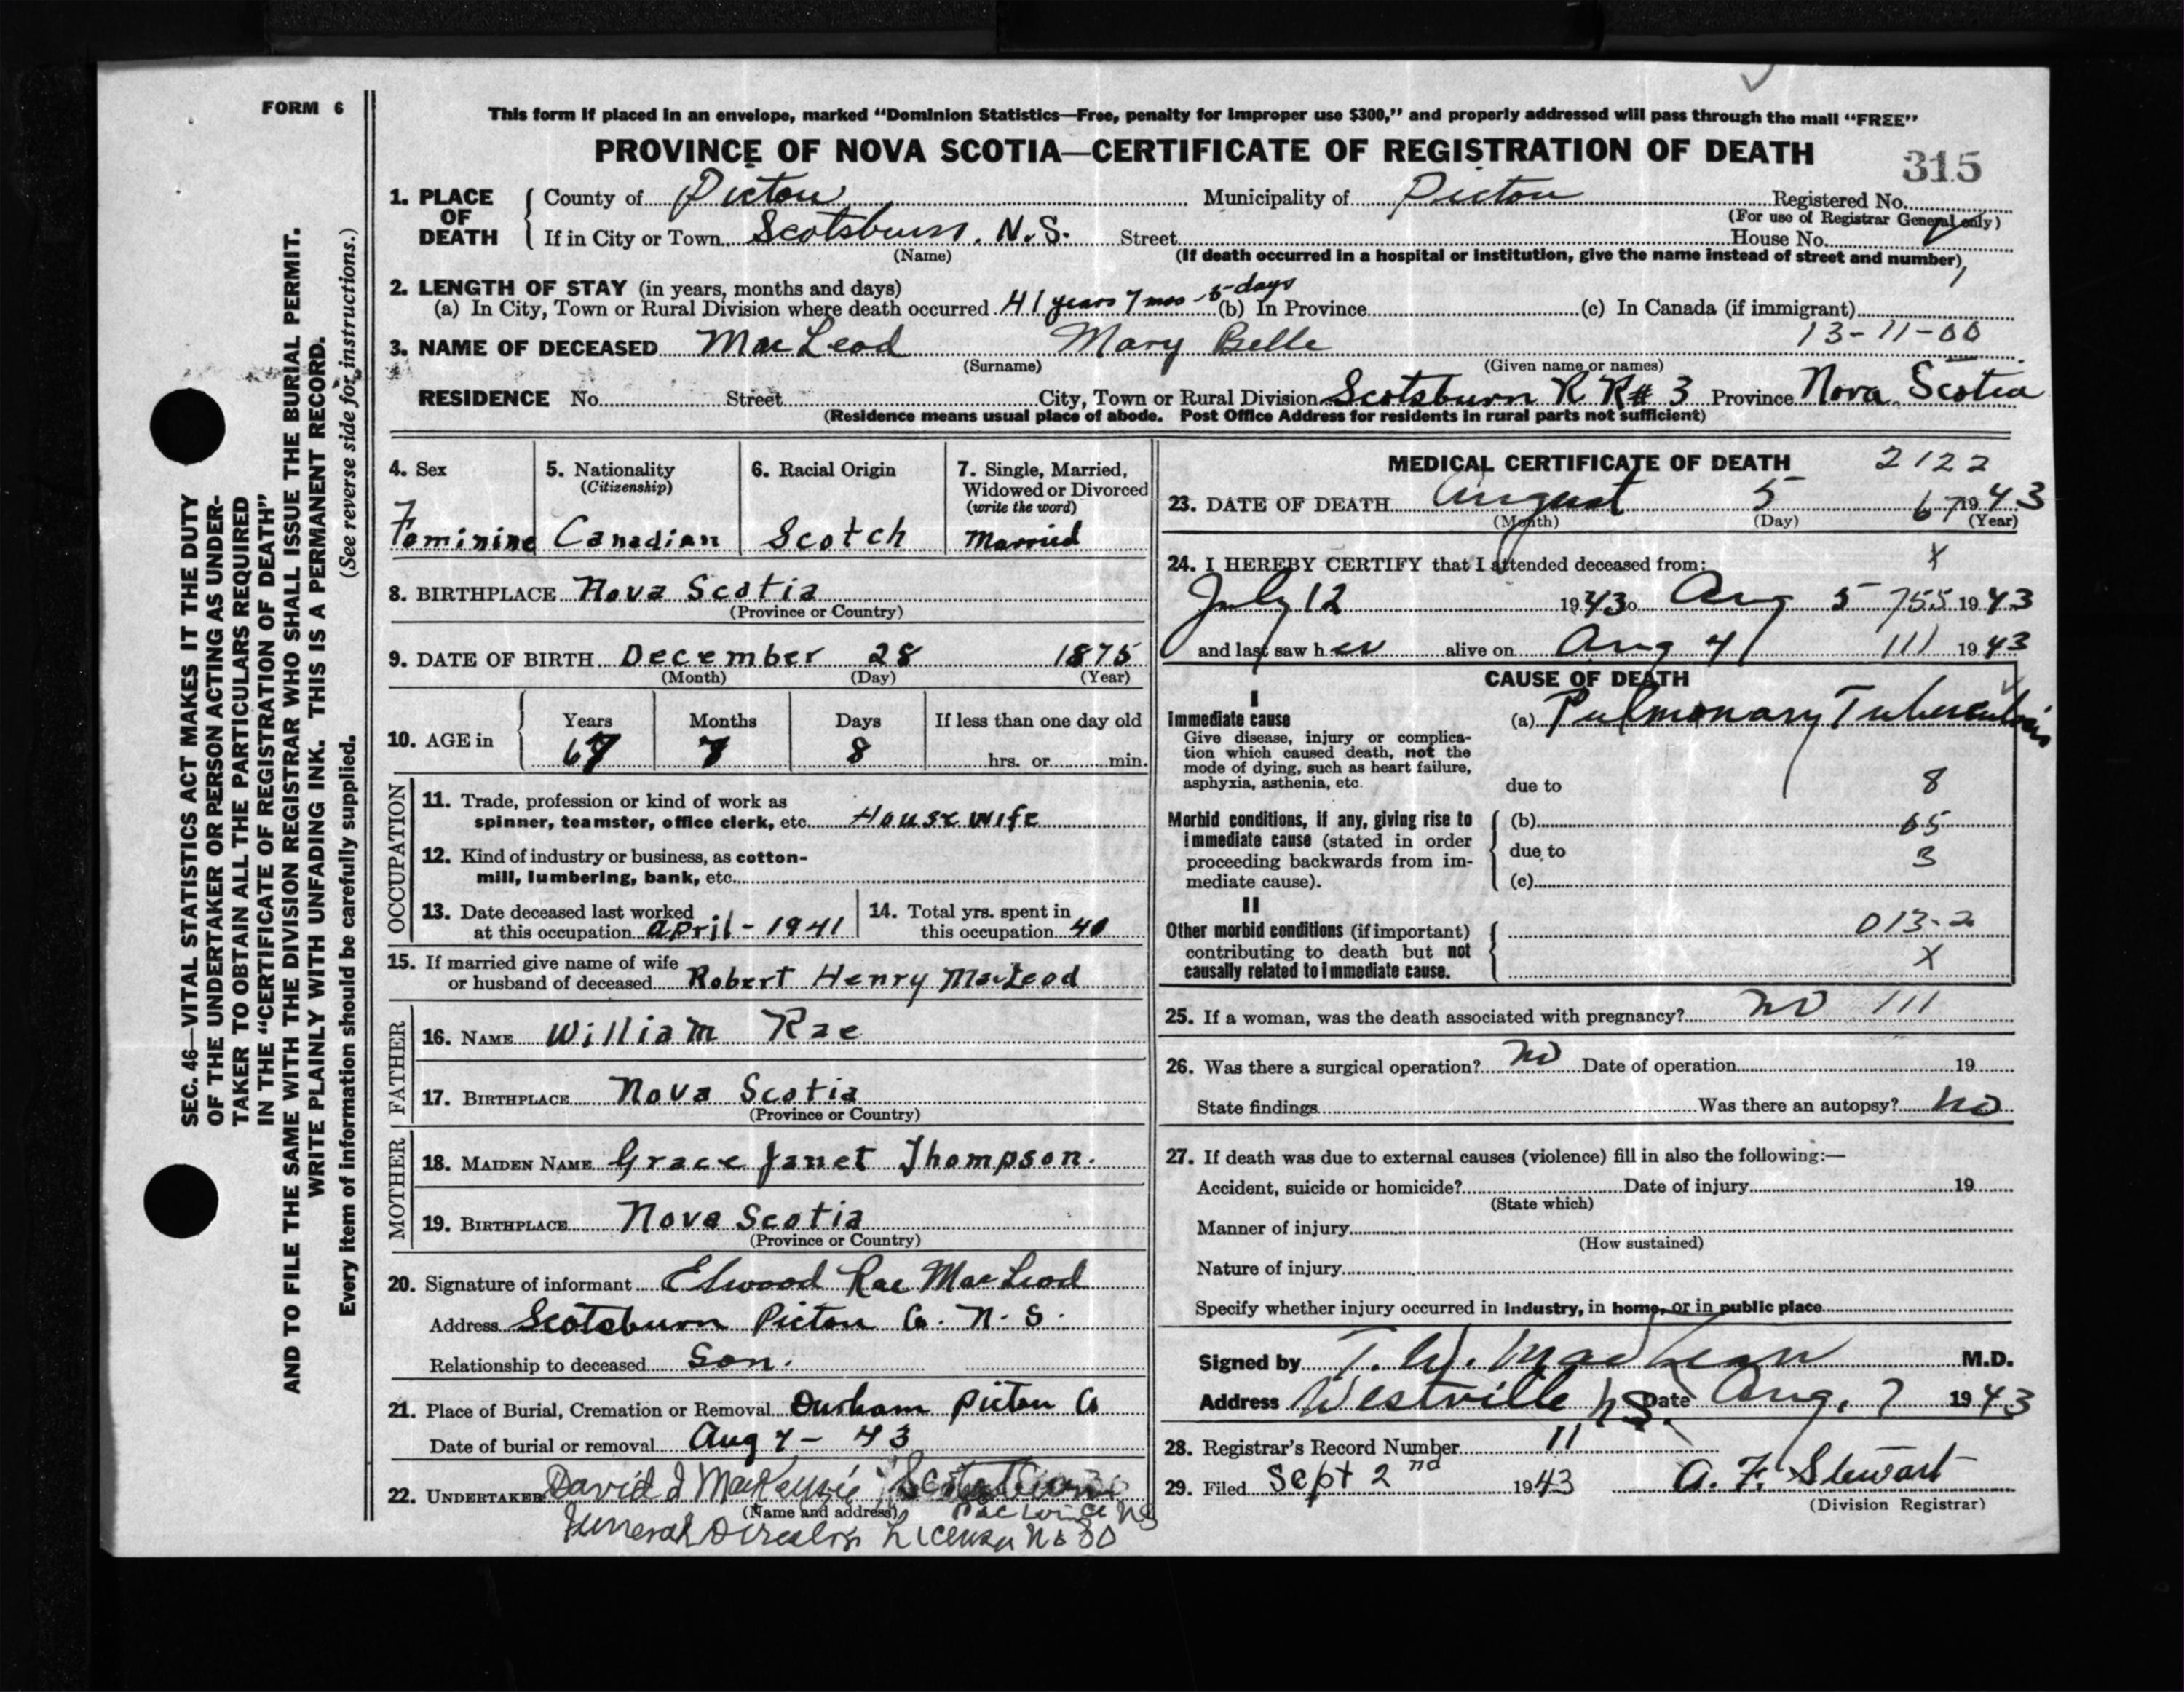 FORM 6
This form if placed in an envelope, marked "Dominion Statistics—Free, penalty for improper use $300," and properly addressed will pass through the mail "FREE"
PROVINCE OF NOVA SCOTIA—CERTIFICATE OF REGISTRATION OF DEATH
315
1. PLACE OF DEATH County of Pictou Municipality of Pictou Registered No.
(For use of Registrar General only)
If in City or Town Scotsburn, N.S. Street House No.
(Name) (If death occurred in a hospital or institution, give the name instead of street and number)
2. LENGTH OF STAY (in years, months and days)
(a) In City, Town or Rural Division where death occurred 41 years 7 mos - 5 days (b) In Province (c) In Canada (if immigrant)
13-11-00
3. NAME OF DECEASED MacLeod Mary Belle
(Surname) (Given name or names)
RESIDENCE No. Street City, Town or Rural Division Scotsburn R R# 3 Province Nova Scotia
(Residence means usual place of abode. Post Office Address for residents in rural parts not sufficient)
4. Sex
Feminine
5. Nationality
(Citizenship)
Canadian
6. Racial Origin
Scotch
7. Single, Married,
Widowed or Divorced
(write the word)
Married
8. BIRTHPLACE Nova Scotia
(Province or Country)
9. DATE OF BIRTH December 28 1875
(Month) (Day) (Year)
10. AGE in Years Months Days If less than one day old
67 7 8 hrs. or min.
OCCUPATION
11. Trade, profession or kind of work as
spinner, teamster, office clerk, etc. Housewife
12. Kind of industry or business, as cotton-
mill, lumbering, bank, etc.
13. Date deceased last worked
at this occupation April - 1941
14. Total yrs. spent in
this occupation 40
15. If married give name of wife
or husband of deceased Robert Henry MacLeod
FATHER
16. NAME William Rae
17. BIRTHPLACE Nova Scotia
(Province or Country)
MOTHER
18. MAIDEN NAME Grace Janet Thompson.
19. BIRTHPLACE Nova Scotia
(Province or Country)
20. Signature of informant Elwood Rae MacLeod
Address Scotsburn Pictou Co. N. S.
Relationship to deceased Son.
21. Place of Burial, Cremation or Removal Durham Pictou Co
Date of burial or removal Aug 7 - 43
22. UNDERTAKER David J MacKenzie
(Name and address)
Funeral Director License No 80
MEDICAL CERTIFICATE OF DEATH 2122
23. DATE OF DEATH August 5 67 1943
(Month) (Day) (Year)
24. I HEREBY CERTIFY that I attended deceased from: X
July 12 1943 to Aug 5 755 1943
and last saw her alive on Aug 4 111 1943
CAUSE OF DEATH
I
Immediate cause
Give disease, injury or complica-
tion which caused death, not the
mode of dying, such as heart failure,
asphyxia, asthenia, etc.
(a) Pulmonary Tuberculosis
due to 8
Morbid conditions, if any, giving rise to
immediate cause (stated in order
proceeding backwards from im-
mediate cause).
(b) 65
due to 3
(c)
II
Other morbid conditions (if important)
contributing to death but not
causally related to immediate cause.
013-2
X
25. If a woman, was the death associated with pregnancy? no 111
26. Was there a surgical operation? no Date of operation 19
State findings Was there an autopsy? no
27. If death was due to external causes (violence) fill in also the following:—
Accident, suicide or homicide? Date of injury 19
(State which)
Manner of injury
(How sustained)
Nature of injury
Specify whether injury occurred in industry, in home, or in public place
Signed by T. W. MacLean M.D.
Address Westville N.S. Date Aug. 7 1943
28. Registrar's Record Number 11
29. Filed Sept 2nd 1943 A. F. Stewart
(Division Registrar)
SEC. 46—VITAL STATISTICS ACT MAKES IT THE DUTY
OF THE UNDERTAKER OR PERSON ACTING AS UNDER-
TAKER TO OBTAIN ALL THE PARTICULARS REQUIRED
IN THE "CERTIFICATE OF REGISTRATION OF DEATH"
AND TO FILE THE SAME WITH THE DIVISION REGISTRAR WHO SHALL ISSUE THE BURIAL PERMIT.
WRITE PLAINLY WITH UNFADING INK. THIS IS A PERMANENT RECORD.
Every item of information should be carefully supplied. (See reverse side for instructions.)